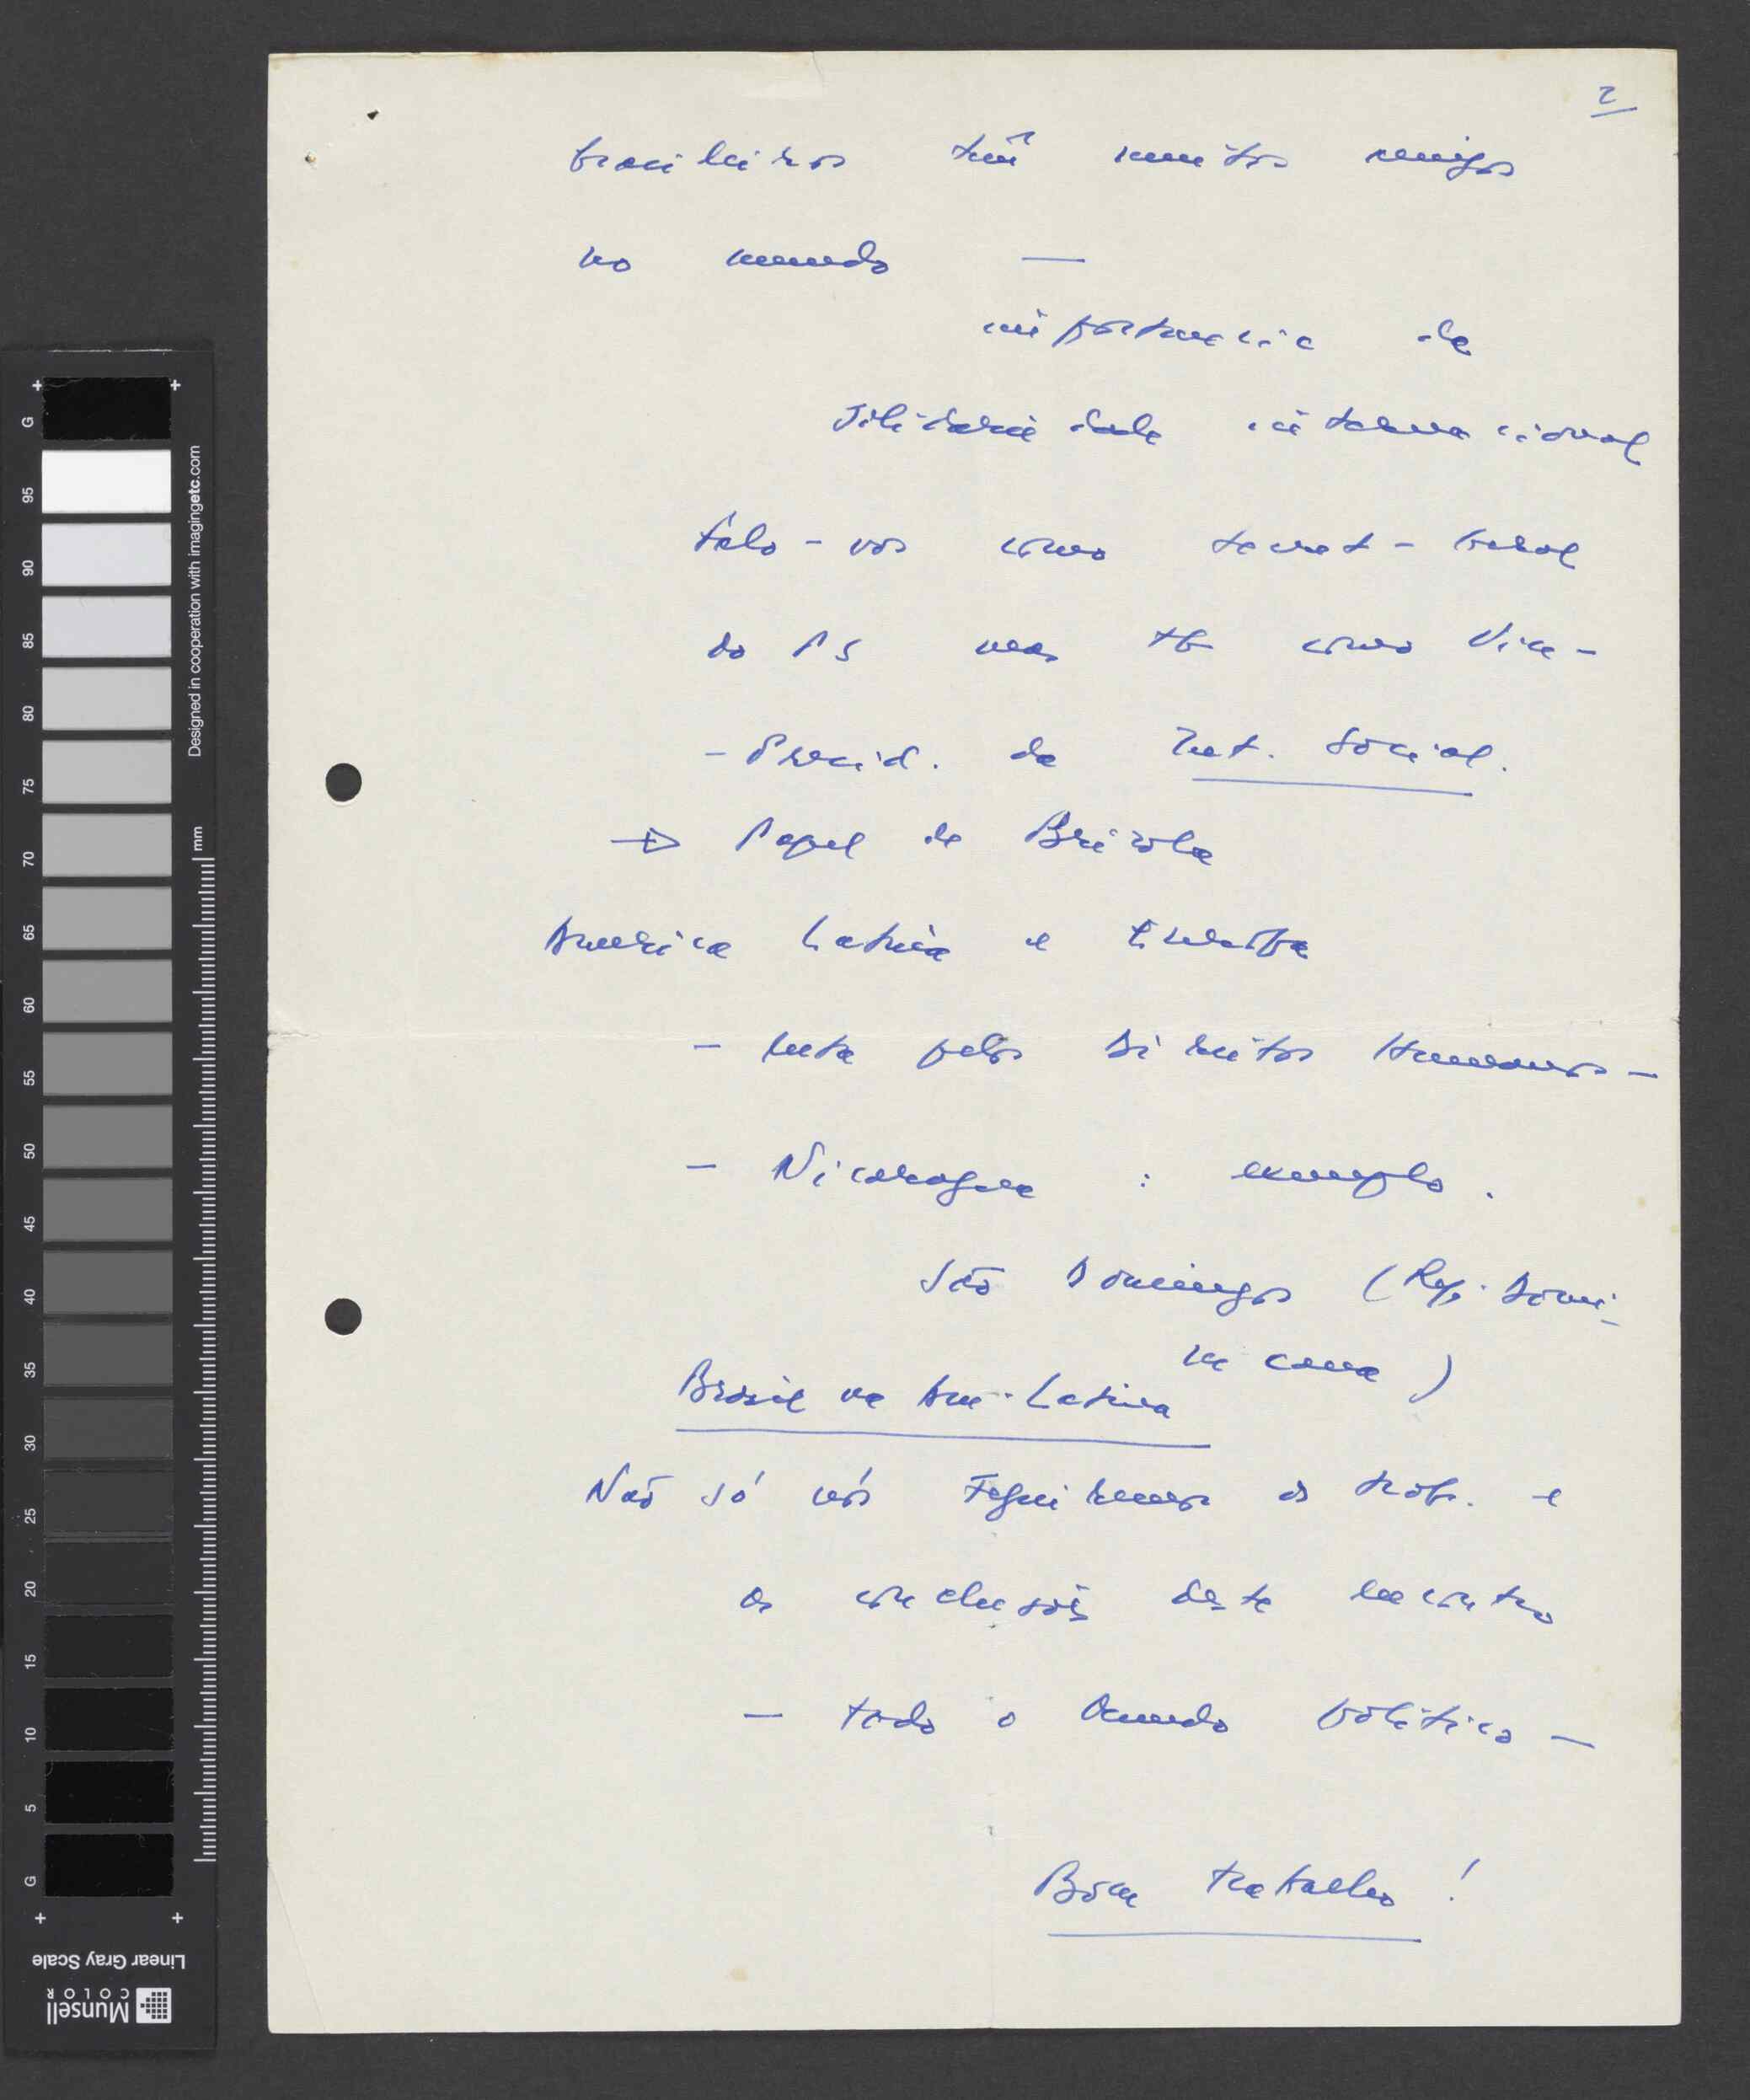 2
brasileiros têm muitos amigos
no mundo —
importancia da
Solidariedade internacional
Falo-vos como secret-Geral
do PS mas tb como Vice-
- Presid. da Int. Social.
→ Papel de Brizola
America Latina e Europa
- luta pelos Direitos Humanos -
- Nicaragua : exemplo.
São Domingos (Rep. Domi-
nicana)
Brasil na Am. Latina
Não só nós seguiremos os trab. e
as conclusões deste encontro
- todo o Mundo politico -
Bom trabalho !
G
95
90
85
80
75
70
65
60
55
50
45
40
35
30
25
20
15
10
5
G
Designed in cooperation with imagingetc.com
mm
Linear Gray Scale
Munsell
COLOR